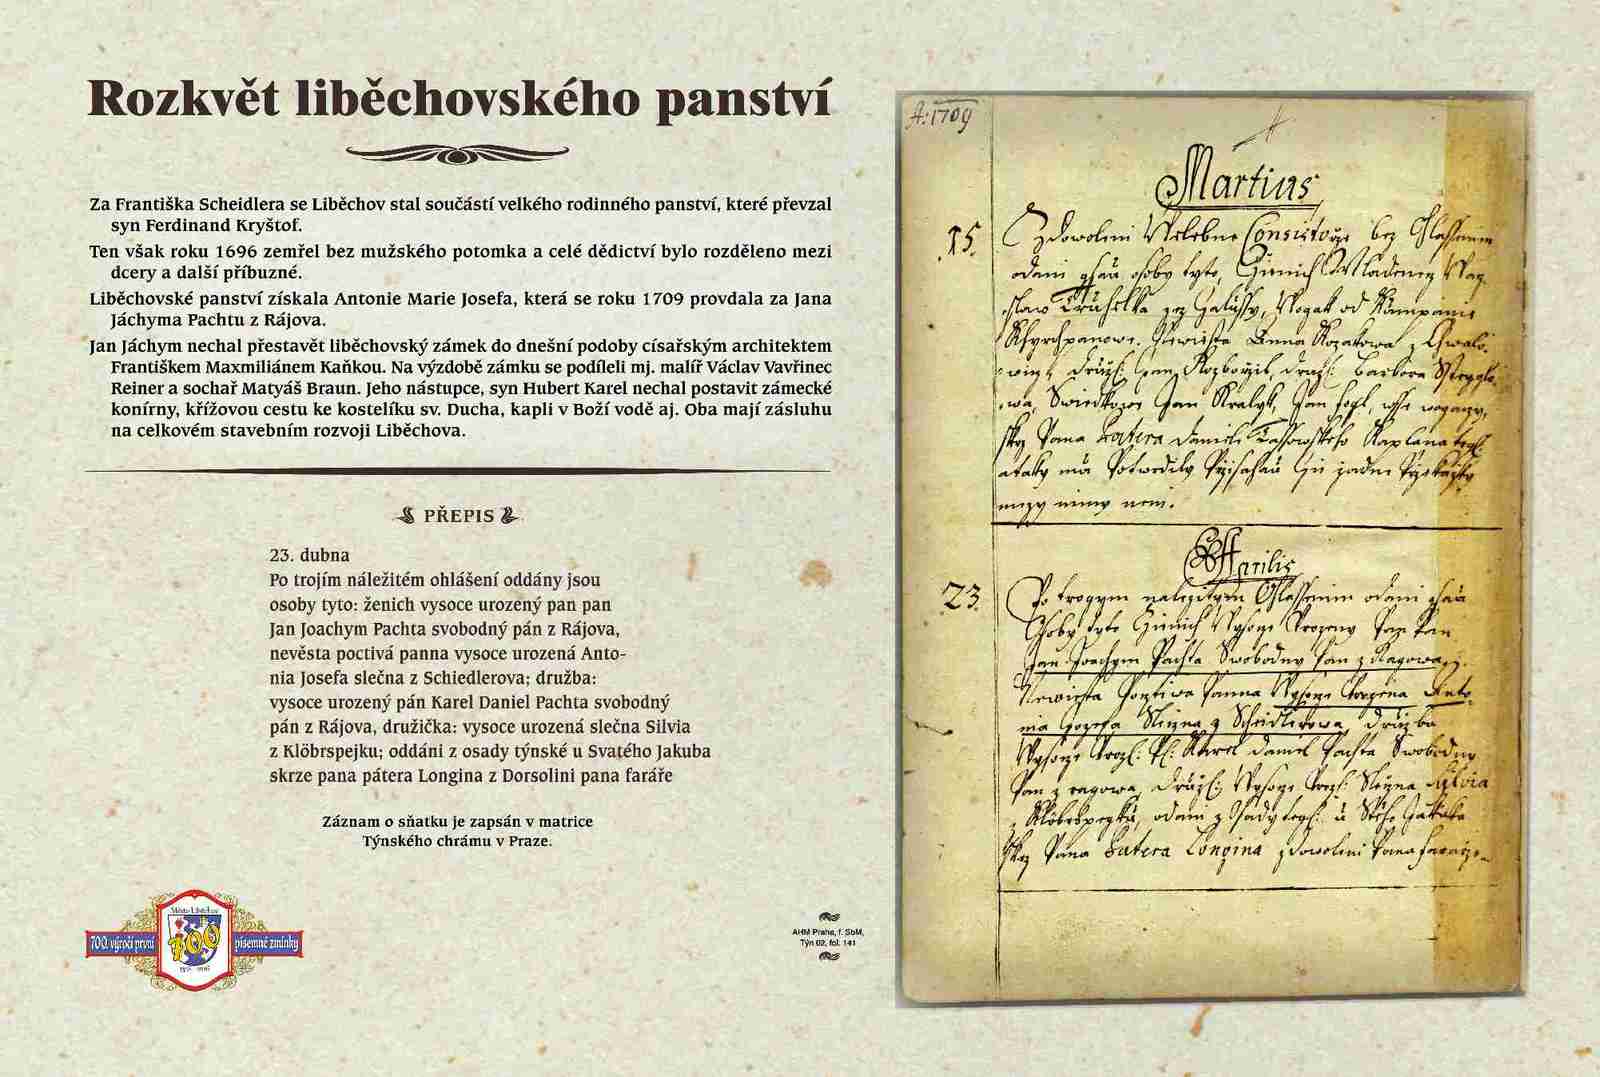 Rozkvět liběchovského panství
Za Františka Scheidlera se Liběchov stal součástí velkého rodinného panství, které převzal
syn Ferdinand Kryštof.
Ten však roku 1696 zemřel bez mužského potomka a celé dědictví bylo rozděleno mezi
dcery a další příbuzné.
Liběchovské panství získala Antonie Marie Josefa, která se roku 1709 provdala za Jana
Jáchyma Pachtu z Rájova.
Jan Jáchym nechal přestavět liběchovský zámek do dnešní podoby císařským architektem
Františkem Maxmiliánem Kaňkou. Na výzdobě zámku se podíleli mj. malíř Václav Vavřinec
Reiner a sochař Matyáš Braun. Jeho nástupce, syn Hubert Karel nechal postavit zámecké
konírny, křížovou cestu ke kostelíku sv. Ducha, kapli v Boží vodě aj. Oba mají zásluhu
na celkovém stavebním rozvoji Liběchova.
PŘEPIS
23. dubna
Po trojím náležitém ohlášení oddány jsou
osoby tyto: ženich vysoce urozený pan pan
Jan Joachym Pachta svobodný pán z Rájova,
nevěsta poctivá panna vysoce urozená Anto-
nia Josefa slečna z Schiedlerova; družba:
vysoce urozený pán Karel Daniel Pachta svobodný
pán z Rájova, družička: vysoce urozená slečna Silvia
z Klöbrspejku; oddáni z osady týnské u Svatého Jakuba
skrze pana pátera Longina z Dorsolini pana faráře
Záznam o sňatku je zapsán v matrice
Týnského chrámu v Praze.
Město Liběchov
700. výročí první
700
písemné zmínky
AHM Praha, f. SbM,
Týn 02, fol. 141
A: 1709
Martius
15.
Z dowoleni Welebne Consistorze bez Ohlassenim
odani gsau osoby tyto, Zienich Mladenecz
od
Newiesta Anna Kozakowa z
Barbora
Swiedkowe Jan Kralyk, Jan
Pana Patera Daniele Kaplana
mezy nimy neni.
Aprilis
23.
Po trogym nalezitym Ohlassenim odani gsau
Osoby tyto Zienich Wysoze Urozeny Pan Pan
Jan Joachym Pachta Swobodny Pan z Ragowa,
Newiesta Poctiwa Panna Wysoze Urozena Anto-
nia Jozefa Slezna z Scheidlerowa, Druzba
Wysoze Uroz: P: Karel Daniel Pachta Swobodny
Pan z ragowa, Druz: Wysoze Uroz: Slezna Sylvia
odani z Osady u Jakuba
Pana Patera Longina z dowoleni Pana faraze